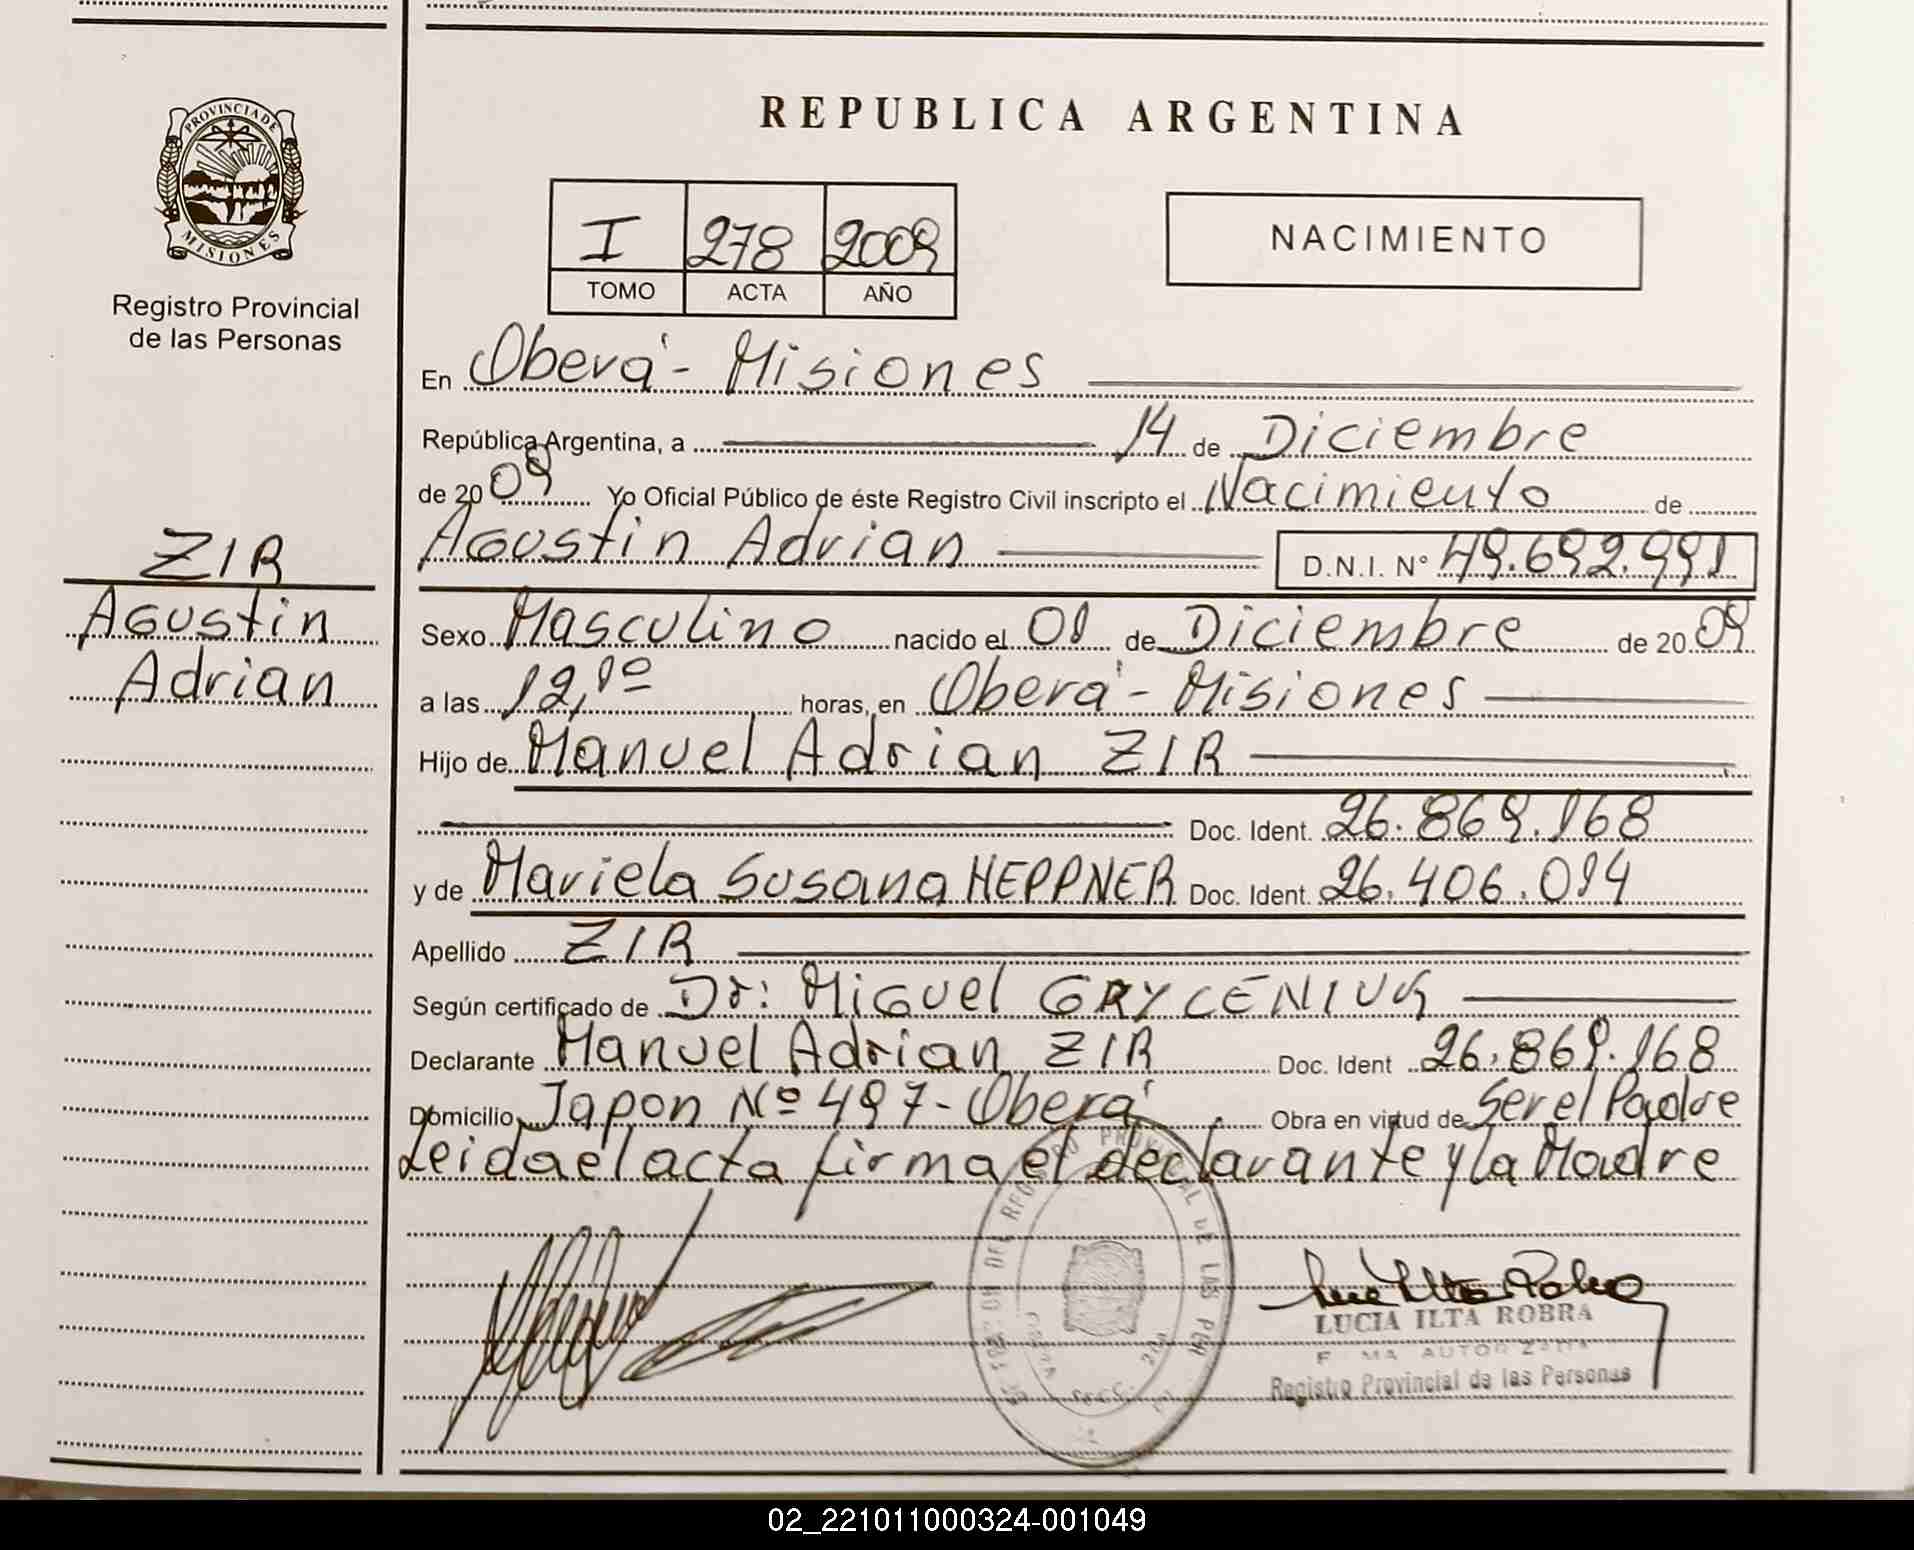 REPUBLICA ARGENTINA
PROVINCIA DE
MISIONES
Registro Provincial
de las Personas
I 278 2009
TOMO ACTA AÑO
NACIMIENTO
En Oberá - Misiones
República Argentina, a 14 de Diciembre
de 2009 Yo Oficial Público de éste Registro Civil inscripto el Nacimiento de
Agustin Adrian D.N.I. N° 49.692.991
ZIR
Agustin
Adrian
Sexo Masculino nacido el 01 de Diciembre de 2009
a las 12,10 horas, en Oberá - Misiones
Hijo de Manuel Adrian ZIR
Doc. Ident. 26.869.168
y de Mariela Susana HEPPNER Doc. Ident. 26.406.014
Apellido ZIR
Según certificado de Dr: Miguel GRYCENIUK
Declarante Manuel Adrian ZIR Doc. Ident 26.869.168
Domicilio Japon Nº 497 - Oberá Obra en virtud de Ser el Padre
Leida el acta firma el declarante y la Madre
LUCIA ILTA ROBRA
Registro Provincial de las Personas
02_221011000324-001049